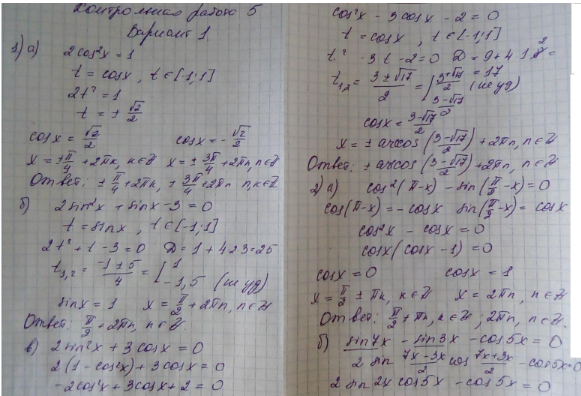 Контрольная работа 5
Вариант 1.
1) а) 2cos²x = 1
t = cosx, t∈[-1;1]
2t² = 1
t = ± √2/2
cosx = √2/2 cosx = -√2/2
x = ±π/4 + 2πn, n∈Z x = ± 3π/4 + 2πn, n∈Z
Ответ: ± π/4 + 2πn, ± 3π/4 + 2πn n∈Z
б) 2sin²x + sinx - 3 = 0
t = sinx, t∈[-1;1]
2t² + t - 3 = 0 D = 1 + 4·2·3 = 25
t₁,₂ = (-1 ± 5)/4 = [1
-1,5 (не уд)
sinx = 1 x = π/2 + 2πn, n∈Z
Ответ: π/2 + 2πn, n∈Z.
в) 2sin²x + 3cosx = 0
2(1 - cos²x) + 3cosx = 0
-2cos²x + 3cosx + 2 = 0
cos²x - 3cosx - 2 = 0
t = cosx, t∈[-1;1]
t² - 3t - 2 = 0 D = 9 + 4·1·2 = 17
t₁,₂ = (3 ± √17)/2 = [(3+√17)/2 (не уд)
(3-√17)/2
cosx = (3-√17)/2
x = ± arccos((3-√17)/2) + 2πn, n∈Z
Ответ: ± arccos((3-√17)/2) + 2πn, n∈Z
2) а) cos²(π-x) - sin(π/2 - x) = 0
cos(π-x) = -cosx sin(π/2 - x) = cosx
cos²x - cosx = 0
cosx(cosx - 1) = 0
cosx = 0 cosx = 1
x = π/2 ± πn, n∈Z x = 2πn, n∈Z
Ответ: π/2 + πn, n∈Z, 2πn, n∈Z.
б) sin7x - sin3x - cos5x = 0
2 sin (7x-3x)/2 cos (7x+3x)/2 - cos5x = 0
2 sin2x cos5x - cos5x = 0